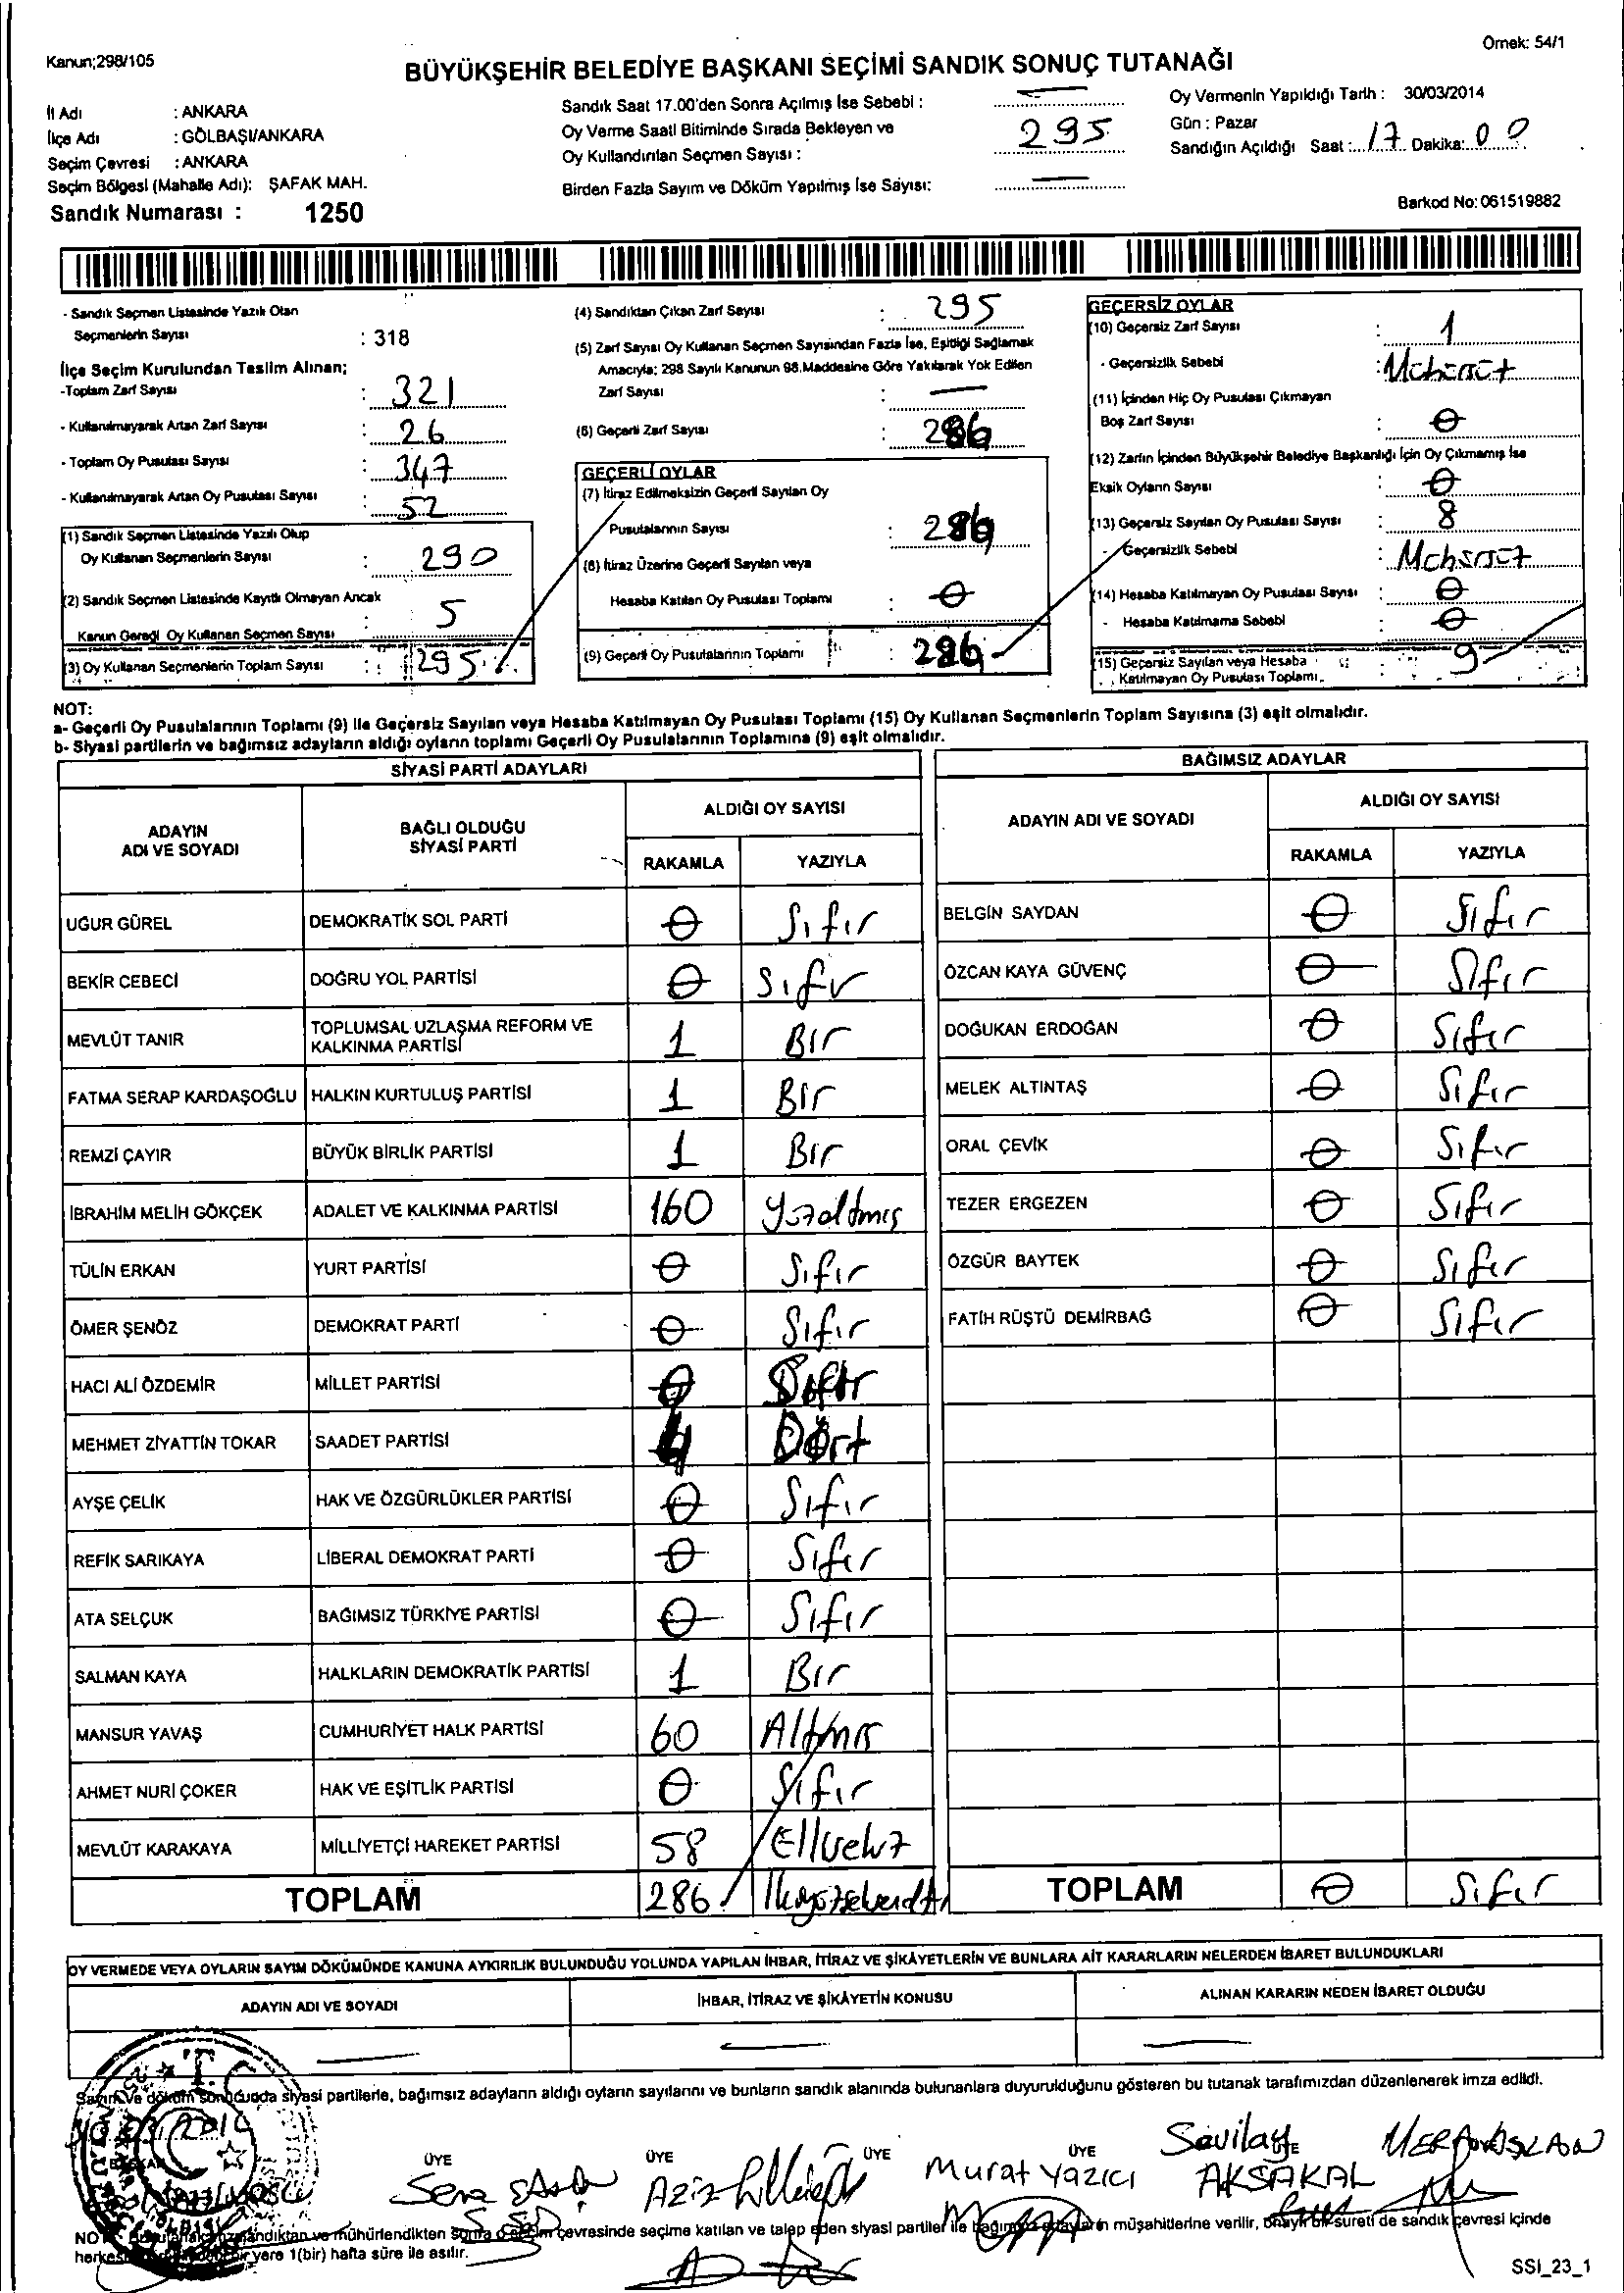 Kanun;298/105
Örnek: 54/1
BÜYÜKŞEHİR BELEDİYE BAŞKANI SEÇİMİ SANDIK SONUÇ TUTANAĞI
İl Adı : ANKARA
İlçe Adı : GÖLBAŞI/ANKARA
Seçim Çevresi : ANKARA
Seçim Bölgesi (Mahalle Adı): ŞAFAK MAH.
Sandık Numarası : 1250
Sandık Saat 17.00'den Sonra Açılmış İse Sebebi : —
Oy Verme Saati Bitiminde Sırada Bekleyen ve
Oy Kullandırılan Seçmen Sayısı : 295
Birden Fazla Sayım ve Döküm Yapılmış İse Sayısı: —
Oy Vermenin Yapıldığı Tarih : 30/03/2014
Gün : Pazar
Sandığın Açıldığı Saat :17 Dakika: 00
Barkod No: 061519882
- Sandık Seçmen Listesinde Yazılı Olan
Seçmenlerin Sayısı : 318
İlçe Seçim Kurulundan Teslim Alınan;
-Toplam Zarf Sayısı : 321
- Kullanılmayarak Artan Zarf Sayısı : 26
- Toplam Oy Pusulası Sayısı : 347
- Kullanılmayarak Artan Oy Pusulası Sayısı : 52
(1) Sandık Seçmen Listesinde Yazılı Olup
Oy Kullanan Seçmenlerin Sayısı : 290
(2) Sandık Seçmen Listesinde Kayıtlı Olmayan Ancak
Kanun Gereği Oy Kullanan Seçmen Sayısı : 5
(3) Oy Kullanan Seçmenlerin Toplam Sayısı : 295
(4) Sandıktan Çıkan Zarf Sayısı : 295
(5) Zarf Sayısı Oy Kullanan Seçmen Sayısından Fazla İse, Eşitliği Sağlamak
Amacıyla; 298 Sayılı Kanunun 98.Maddesine Göre Yakılarak Yok Edilen
Zarf Sayısı : —
(6) Geçerli Zarf Sayısı : 286
GEÇERLİ OYLAR
(7) İtiraz Edilmeksizin Geçerli Sayılan Oy
Pusulalarının Sayısı : 286
(8) İtiraz Üzerine Geçerli Sayılan veya
Hesaba Katılan Oy Pusulası Toplamı : 0
(9) Geçerli Oy Pusulalarının Toplamı : 286
GEÇERSİZ OYLAR
(10) Geçersiz Zarf Sayısı : 1
- Geçersizlik Sebebi :
(11) İçinden Hiç Oy Pusulası Çıkmayan
Boş Zarf Sayısı : 0
(12) Zarfın İçinden Büyükşehir Belediye Başkanlığı İçin Oy Çıkmamış İse
Eksik Oyların Sayısı : 0
(13) Geçersiz Sayılan Oy Pusulası Sayısı : 8
- Geçersizlik Sebebi :
(14) Hesaba Katılmayan Oy Pusulası Sayısı : 0
- Hesaba Katılmama Sebebi : 0
(15) Geçersiz Sayılan veya Hesaba
Katılmayan Oy Pusulası Toplamı : 9
NOT:
a- Geçerli Oy Pusulalarının Toplamı (9) ile Geçersiz Sayılan veya Hesaba Katılmayan Oy Pusulası Toplamı (15) Oy Kullanan Seçmenlerin Toplam Sayısına (3) eşit olmalıdır.
b- Siyasi partilerin ve bağımsız adayların aldığı oyların toplamı Geçerli Oy Pusulalarının Toplamına (9) eşit olmalıdır.
SİYASİ PARTİ ADAYLARI
ADAYIN ADI VE SOYADI BAĞLI OLDUĞU SİYASİ PARTİ ALDIĞI OY SAYISI
RAKAMLA YAZIYLA
UĞUR GÜREL DEMOKRATİK SOL PARTİ 0 Sıfır
BEKİR CEBECİ DOĞRU YOL PARTİSİ 0 Sıfır
MEVLÜT TANIR TOPLUMSAL UZLAŞMA REFORM VE KALKINMA PARTİSİ 1 Bir
FATMA SERAP KARDAŞOĞLU HALKIN KURTULUŞ PARTİSİ 1 Bir
REMZİ ÇAYIR BÜYÜK BİRLİK PARTİSİ 1 Bir
İBRAHİM MELİH GÖKÇEK ADALET VE KALKINMA PARTİSİ 160 Yüzaltmış
TÜLİN ERKAN YURT PARTİSİ 0 Sıfır
ÖMER ŞENÖZ DEMOKRAT PARTİ 0 Sıfır
HACI ALİ ÖZDEMİR MİLLET PARTİSİ 0 Sıfır
MEHMET ZİYATTİN TOKAR SAADET PARTİSİ 4 Dört
AYŞE ÇELİK HAK VE ÖZGÜRLÜKLER PARTİSİ 0 Sıfır
REFİK SARIKAYA LİBERAL DEMOKRAT PARTİ 0 Sıfır
ATA SELÇUK BAĞIMSIZ TÜRKİYE PARTİSİ 0 Sıfır
SALMAN KAYA HALKLARIN DEMOKRATİK PARTİSİ 1 Bir
MANSUR YAVAŞ CUMHURİYET HALK PARTİSİ 60 Altmış
AHMET NURİ ÇOKER HAK VE EŞİTLİK PARTİSİ 0 Sıfır
MEVLÜT KARAKAYA MİLLİYETÇİ HAREKET PARTİSİ 58
TOPLAM 286
BAĞIMSIZ ADAYLAR
ADAYIN ADI VE SOYADI ALDIĞI OY SAYISI
RAKAMLA YAZIYLA
BELGİN SAYDAN 0 Sıfır
ÖZCAN KAYA GÜVENÇ 0 Sıfır
DOĞUKAN ERDOĞAN 0 Sıfır
MELEK ALTINTAŞ 0 Sıfır
ORAL ÇEVİK 0 Sıfır
TEZER ERGEZEN 0 Sıfır
ÖZGÜR BAYTEK 0 Sıfır
FATİH RÜŞTÜ DEMİRBAĞ 0 Sıfır
TOPLAM 0 Sıfır
OY VERMEDE VEYA OYLARIN SAYIM DÖKÜMÜNDE KANUNA AYKIRILIK BULUNDUĞU YOLUNDA YAPILAN İHBAR, İTİRAZ VE ŞİKÂYETLERİN VE BUNLARA AİT KARARLARIN NELERDEN İBARET BULUNDUKLARI
ADAYIN ADI VE SOYADI İHBAR, İTİRAZ VE ŞİKÂYETİN KONUSU ALINAN KARARIN NEDEN İBARET OLDUĞU
— — —
Sayım ve döküm sonucunda siyasi partilerle, bağımsız adayların aldığı oyların sayılarını ve bunların sandık alanında bulunanlara duyurulduğunu gösteren bu tutanak tarafımızdan düzenlenerek imza edildi.
T.C.
BAŞKAN ÜYE ÜYE ÜYE ÜYE ÜYE
Murat YAZICI
Savilay AKSAKAL
NOT: sandıktan ve mühürlendikten sonra o seçim çevresinde seçime katılan ve talep eden siyasi partiler ile bağımsız adayların müşahitlerine verilir, onaylı bir sureti de sandık çevresi içinde
herkesin bir yere 1(bir) hafta süre ile asılır.
SSI_23_1